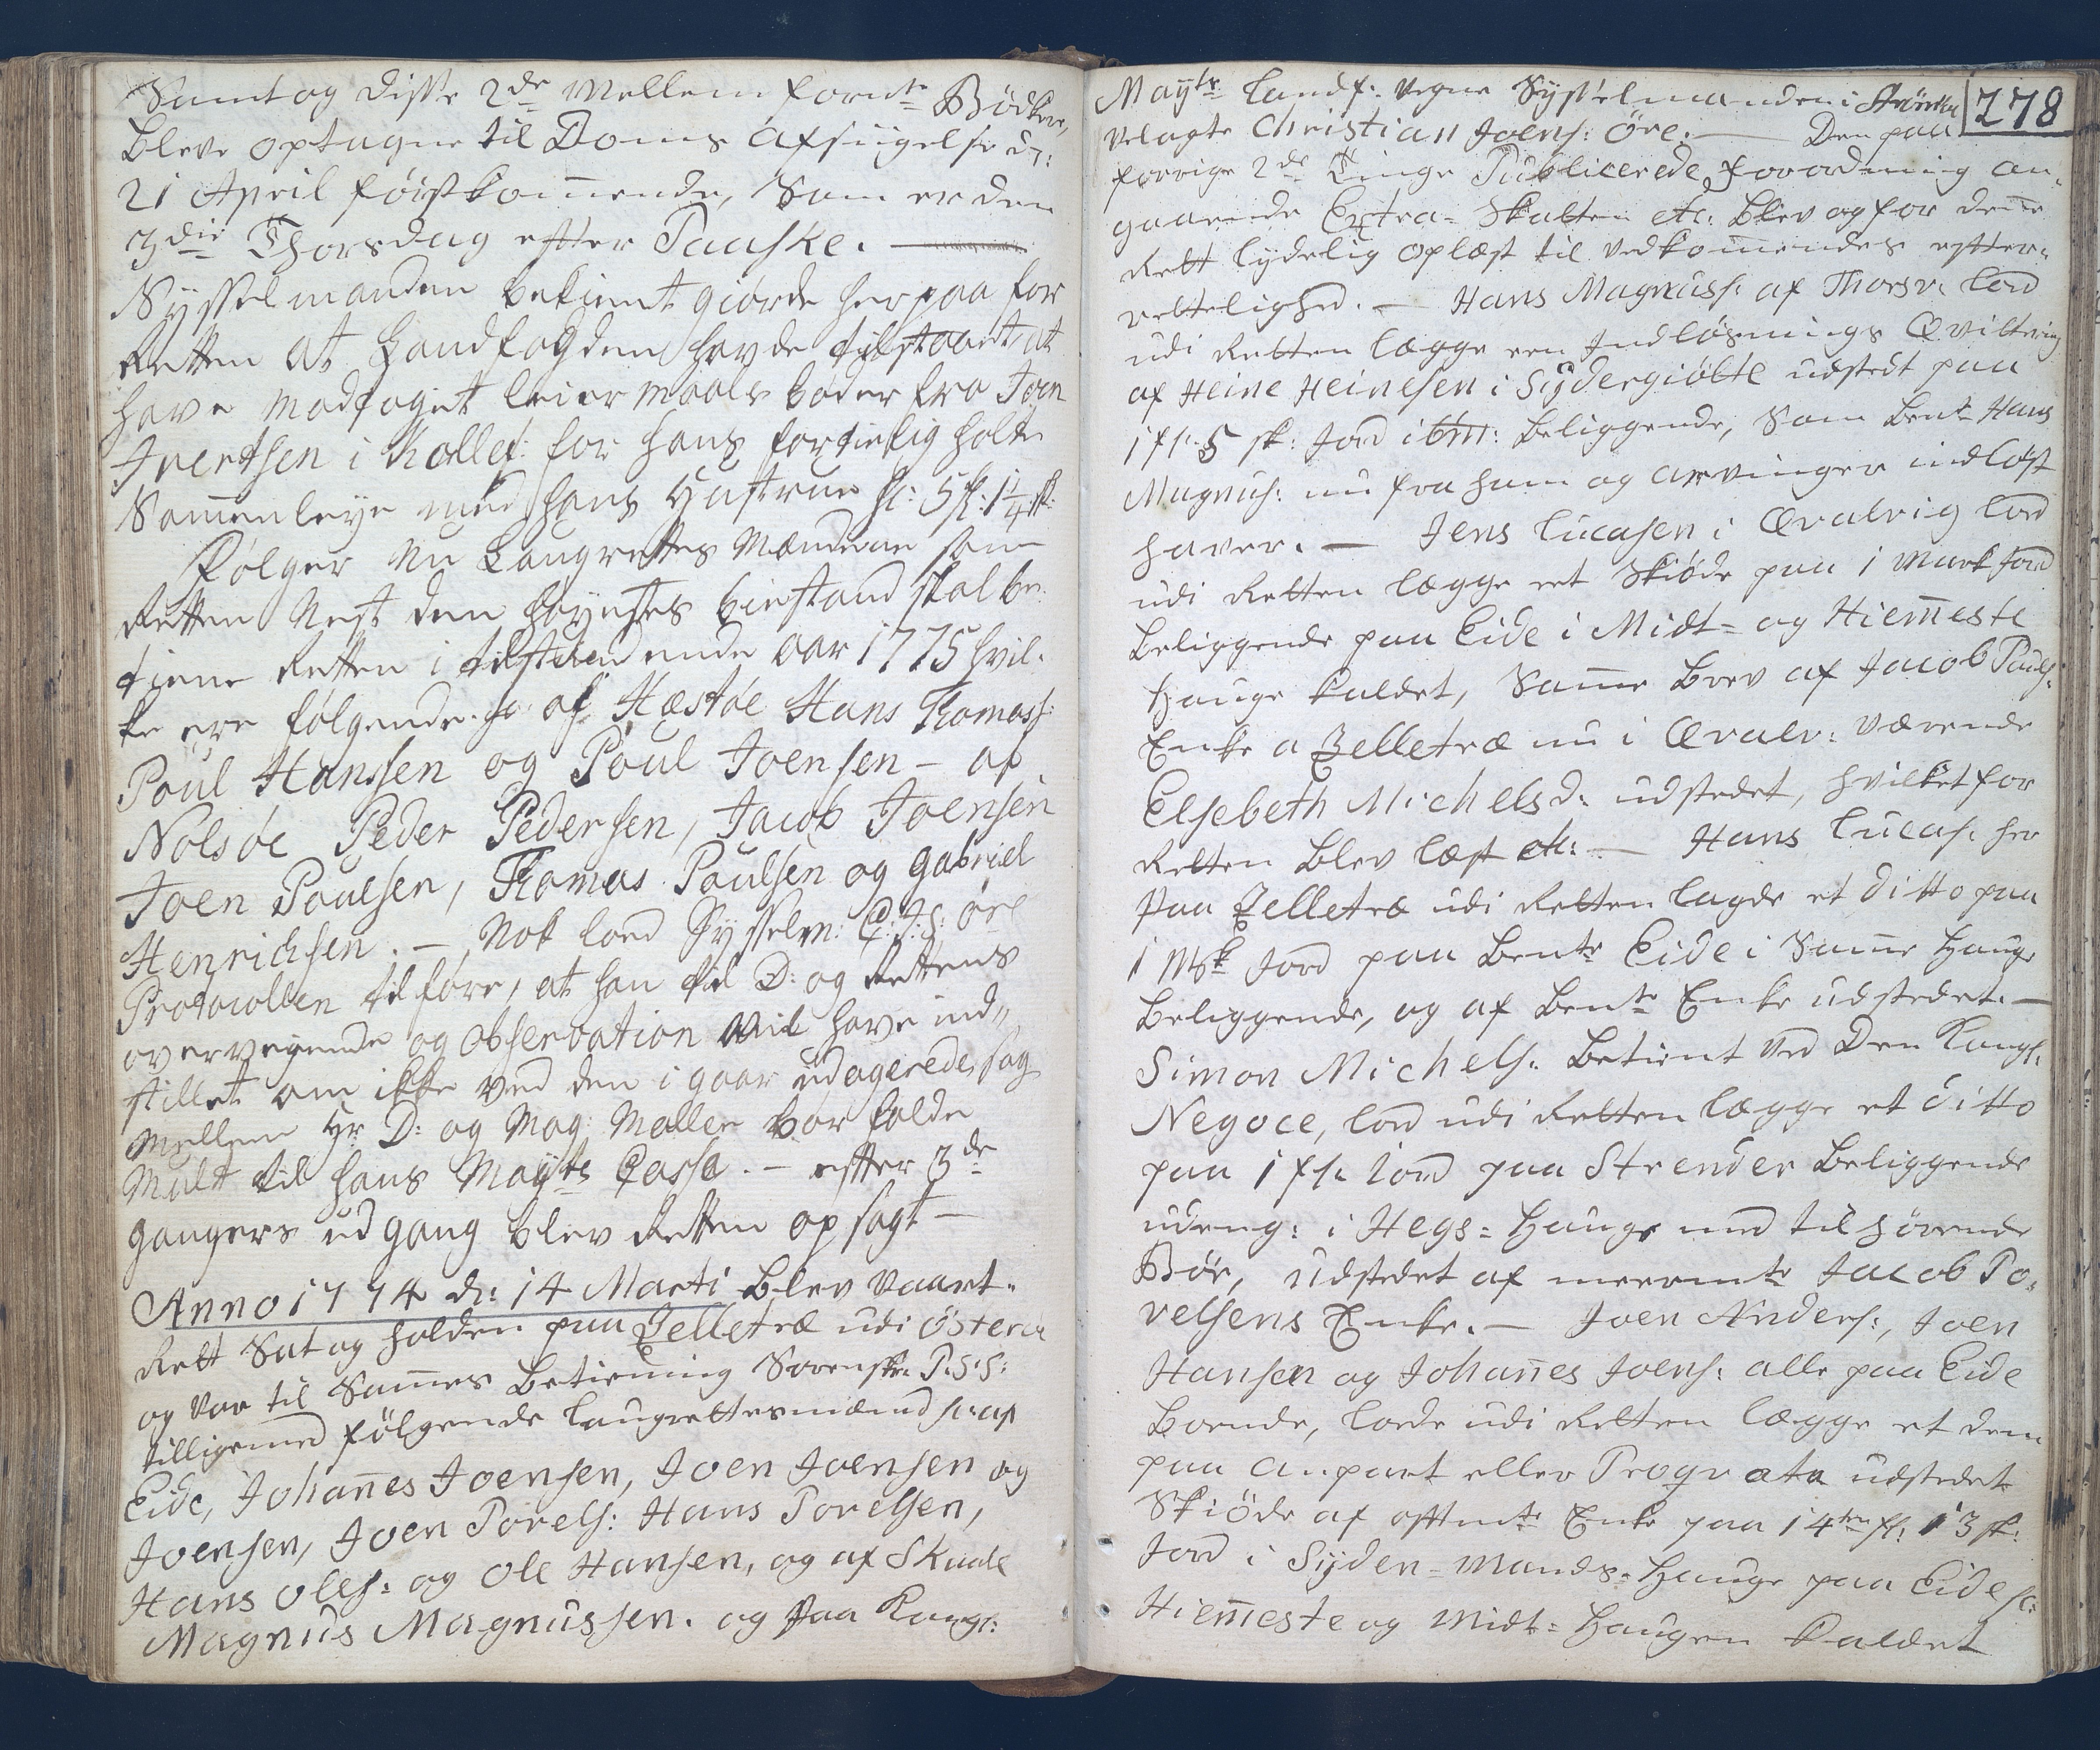 Samt og disse 2de Mellem fornte Bödker,
bleve optagne til Doms afsiigelse d:
21 April førstkom̄ende, Som er den
3die Thorsdag efter Paaske. —
Sysselmanden bekient giorde her paa for
Retten at Landfogden havde tilstaaet at
have modtaget leiermaals bøder fra Joen
Jvertsen i Kollef: for hans fortielig holte
Sam̄enleye med hans Hustrue sc: 5 f: 1¼ sk:
Følger nu Laugrettes Mændene som
Retten Nest den høyestes biestand skal be-
tiene Retten i tilstundende aar 1775 hvil-
ke ere følgende. sc: af Hæstøe Hans Thomass:
Poul Hanssen og Poul Joensen – af
Nolsøe Peder Pedersen, Jacob Joensen
Joen Poulsen, Thomas Poulsen og gabriel
Henrichsen. — Nok loed Sysselm: C: J: S: öre
Protocollen tilføre, at han til D: og Rettens
overveyende og observation vil have ind„
stillet om ikke ved den i gaar udagerede sag
mellem Hr D: og Mag: Møller bør falde
Mult til hans Mayts Cassa. – efter 3de
gangers udgang blev Retten opsagt —
Anno 1774 d: 14 Marti blev Vaart-
Rett Sat og holden paa Zelletræ udi Österøe
og var til Sam̄es Betiening Sorenskr: P: S: S:
tilligemed følgende laugrettesmænd sc: af
Eide, Johan̄es Joensen, Joen Joensen og
Joensen, Joen Povels: Hans Povelsen,
Hans Oles: og Ole Hansen, og af Skaale
Magnus Magnussen. og paa Kongl:
278
Mayts Landf: vegne Sysselmanden i Strömöe
velagte Christian Joens: Öre. — Den paa
forrige 2de Tinge Publicerede forordning an-
gaaende Extra- Skatten etc: blev og for den̄e
Rett lydelig oplæst til vedkom̄endes efter-
rettelighed. — Hans Magnuss: af Thorsv: lod
udi Retten lægge een Indlösnings Qvittering
af Heine Heinesen i Sydergiötte udstedt paa
1 f: 5 sk: Jord ibm: beliggende, Som bente Hans
Magnus: nu fra ham og arvinger indlöst
haver. — Jens Lucasen i Qvalvig lod
udi Retten lægge et Skiöde paa 1 Mark Jord
beliggende paa Eide i Midt- og Hiem̄este
Hauge kaldet, Sam̄e blev af Jacob Pouls:
Enke a Zelletræ nu i Qvalv: værende
Elsebeth Michelsd: udstedet, hvilket for
Retten blev læst etc: — Hans Lucas: her
paa Zelletræ udi Retten lagde et ditto paa
1 Mk Jord paa bente Eide i Sam̄e Hauge
beliggende, og af bente Enke udstedet. —
Simon Michels: Betient ved Den Kongl:
Negoce, lod udi Retten lægge et ditto
paa 1 f: Jord paa Strender beliggende
udeng: i Hegs- Hauge med tilhörende
Bör, udstedet af meermte Jacob Po-
velsens Enke. — Joen Anders:, Joen
Hansen og Johan̄es Joens: alle paa Eide
boende, lode udi Retten lægge et dem
paa anpart eller Prograta udstedet
Skiöde af oftmte Enke paa 14ten f: 13 sk:
Jord i Syden- Mands- Hauge paa Eide sc:
Hiem̄este og Midt- Haugen kaldet